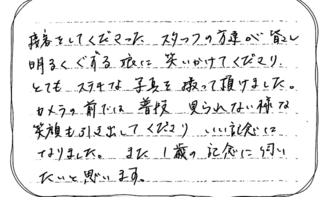 接客をしてくださった スタッフの方達が 皆さん
明るく ぐずる 娘に 笑いかけてくださり、
とても ステキな 写真を 撮って頂けました。
カメラの前では 普段 見られない様な
笑顔も引き出してくださり いい記念に
なりました。 また 1歳の 記念に 伺い
たいと思います。